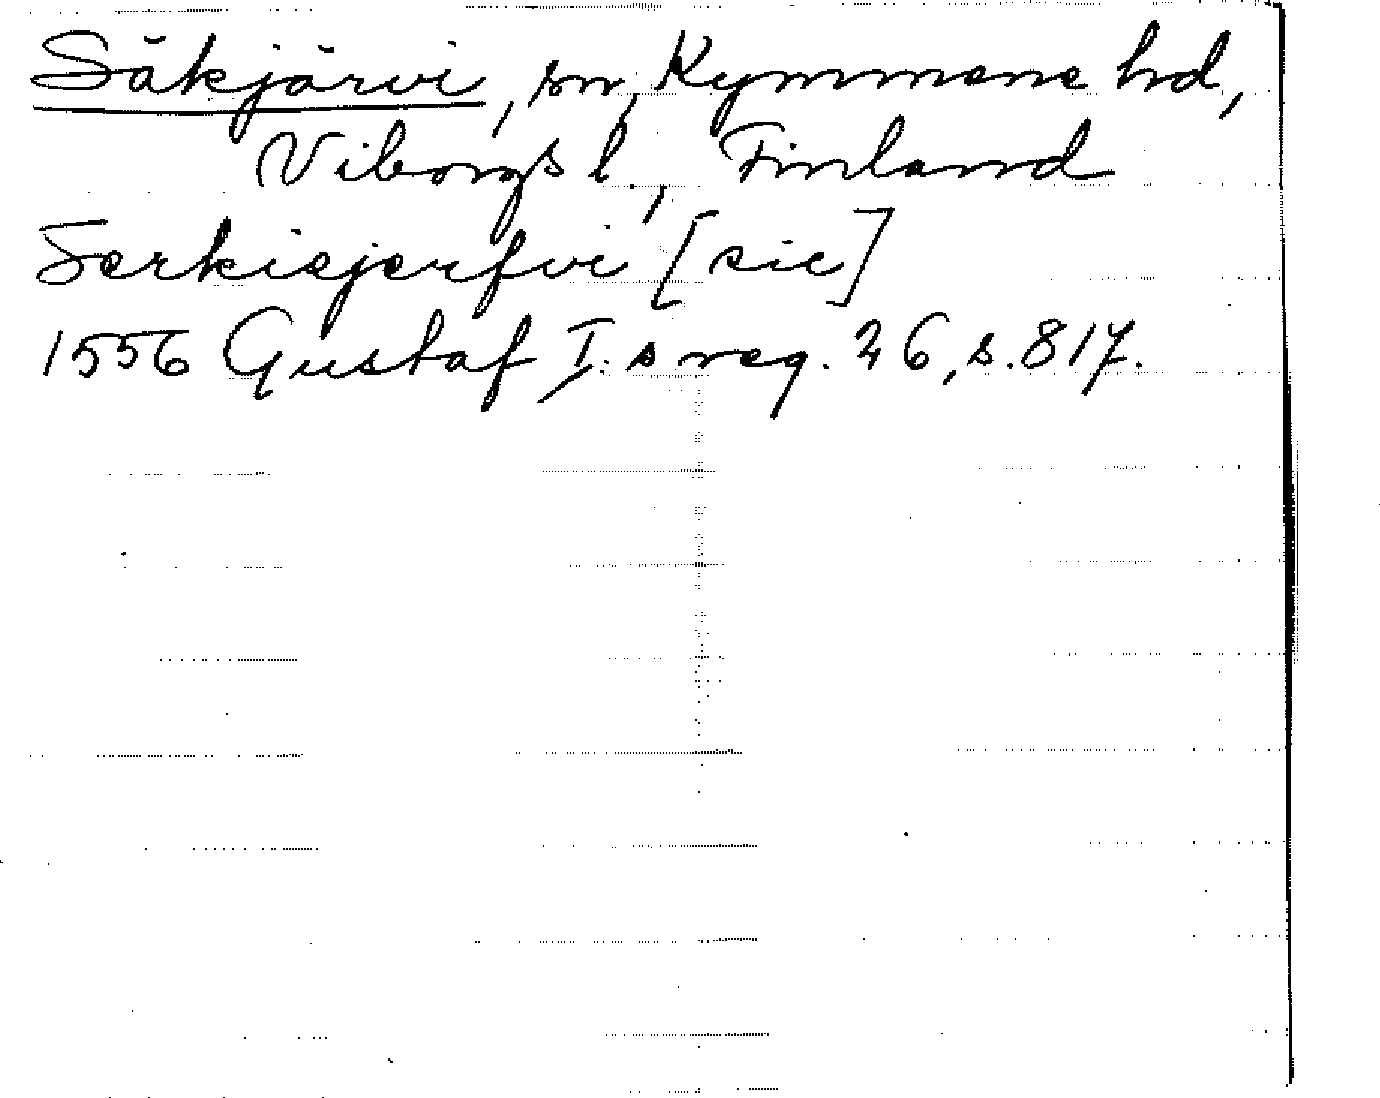 Säkjärvi, sn, Kymmene hd,
Viborgs l, Finland
Serkiejerfvi [sic]
1556 Gustaf I:s reg. 26, s. 817.